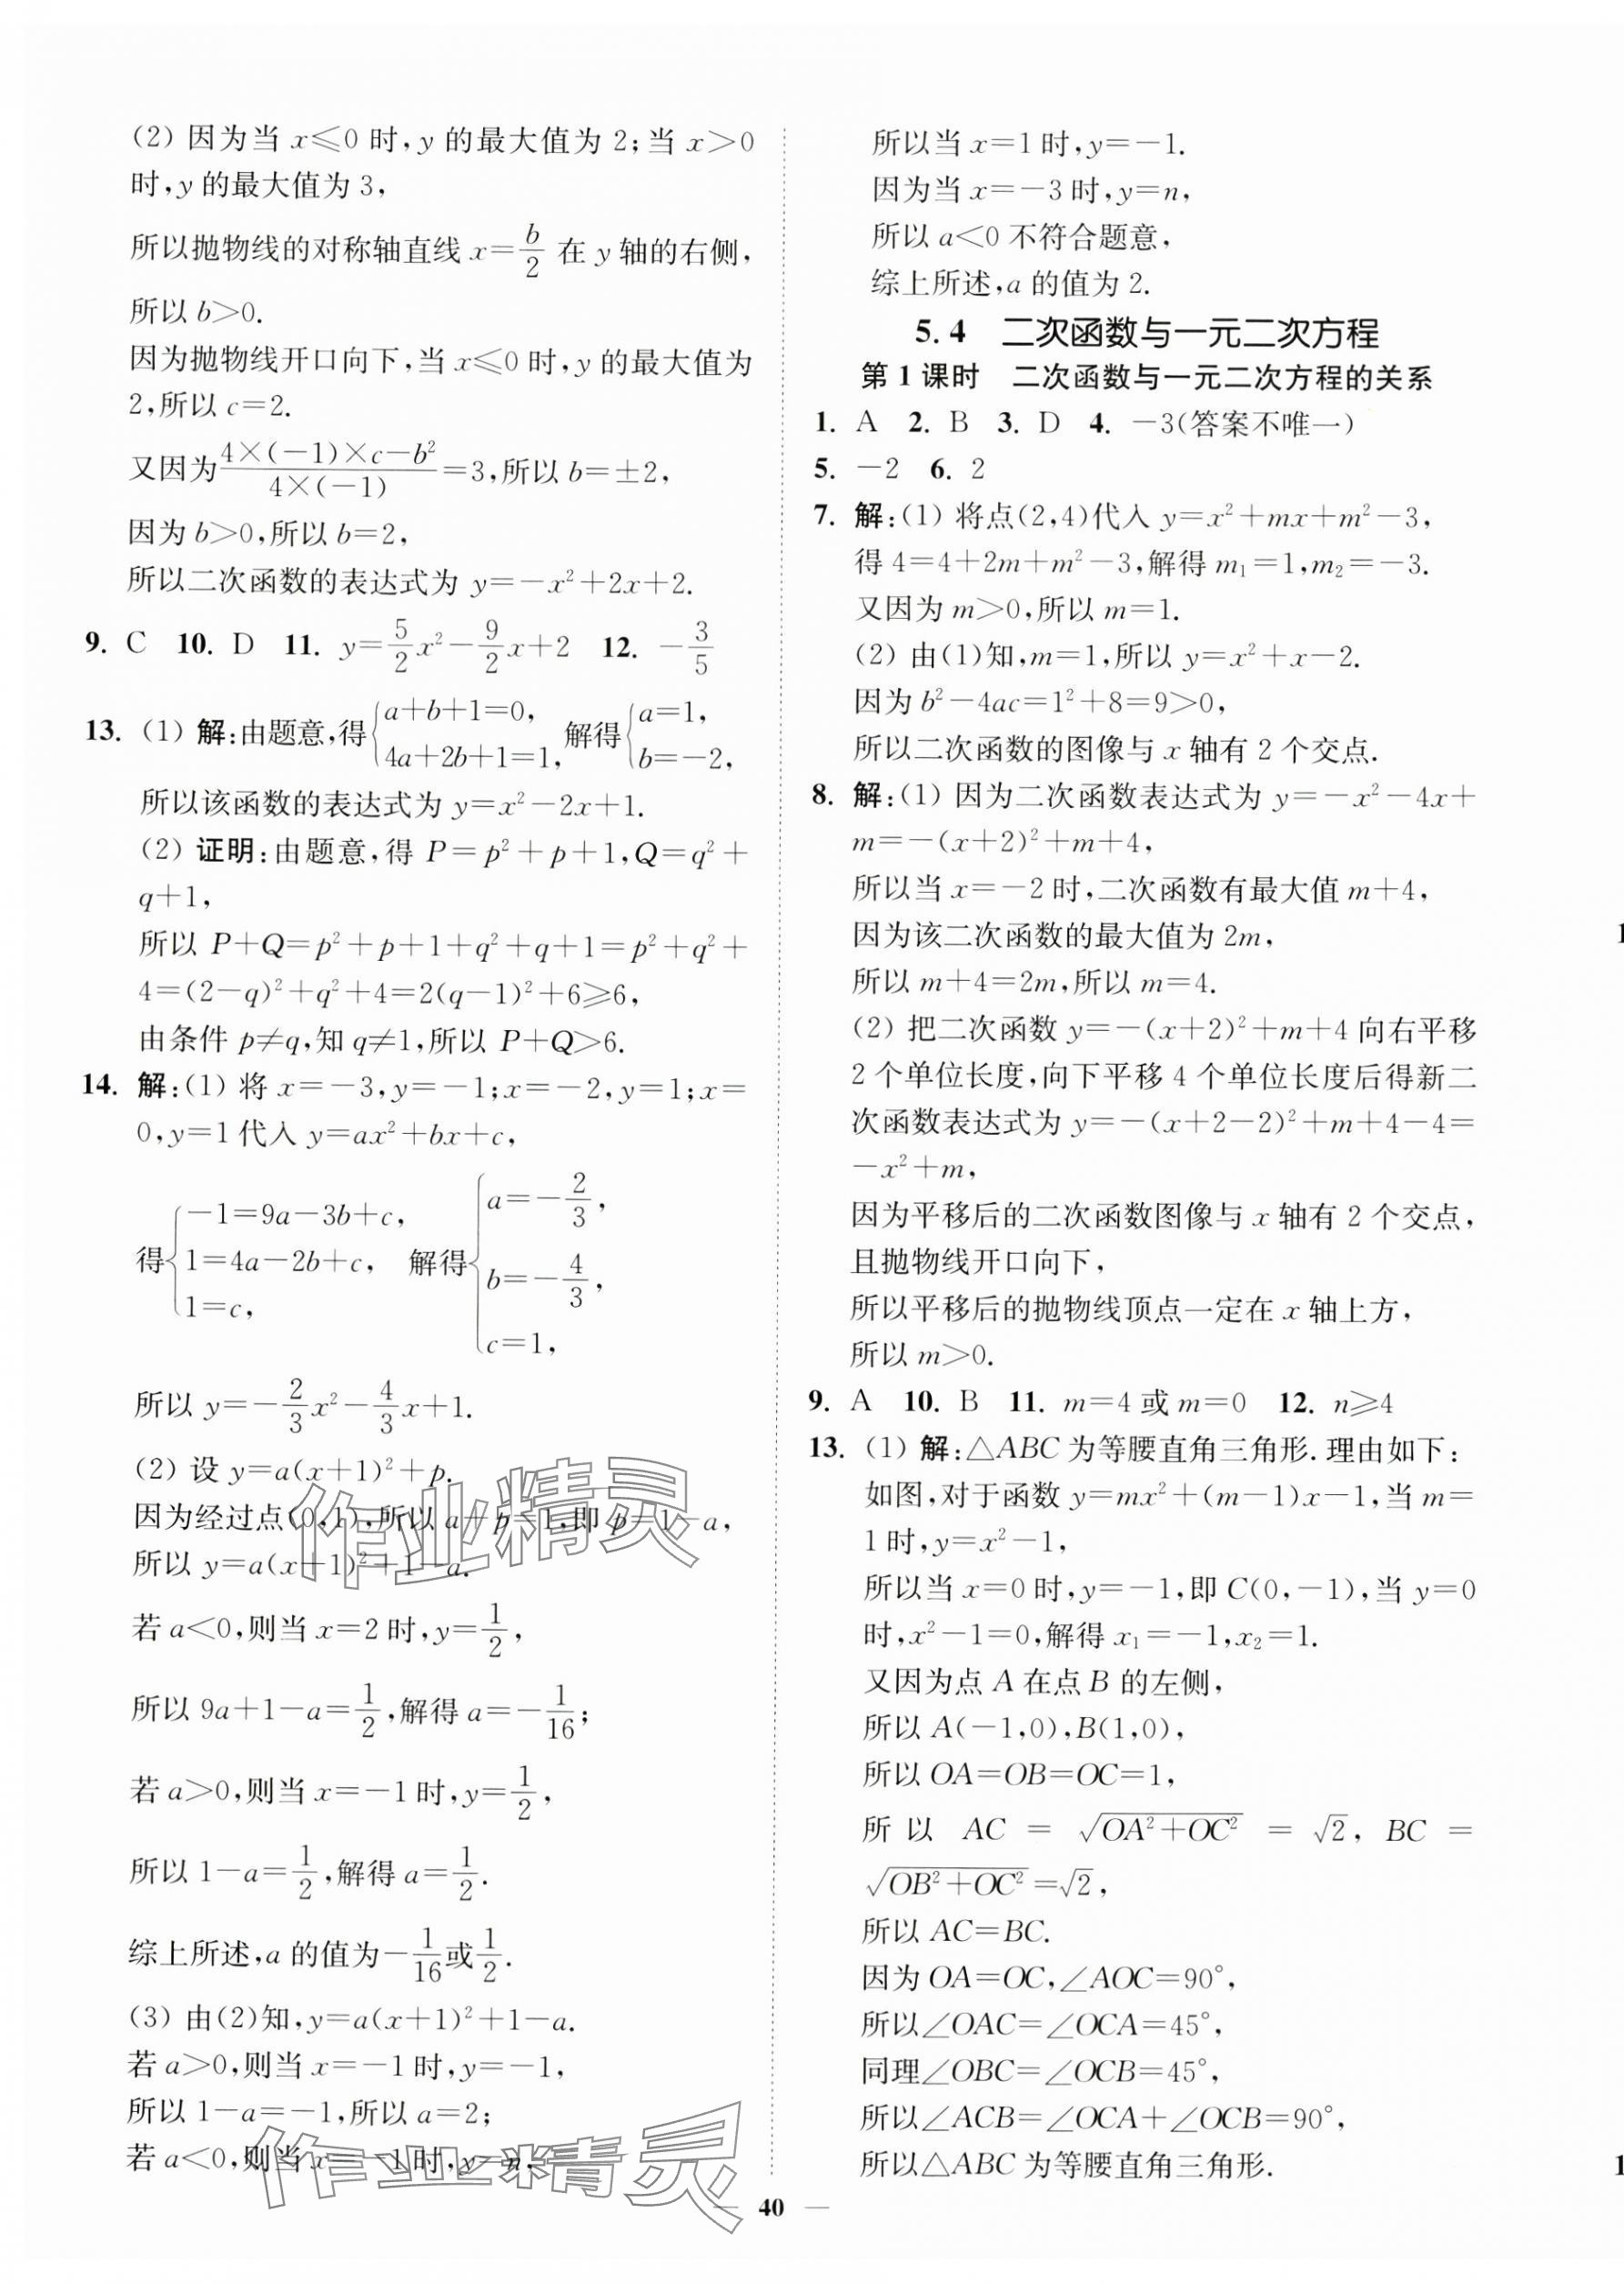 (2) 因为当 x≤0 时,y 的最大值为 2;当 x>0
时,y 的最大值为 3,
所以抛物线的对称轴直线 x=b/2 在 y 轴的右侧,
所以 b>0.
因为抛物线开口向下,当 x≤0 时,y 的最大值为
2,所以 c=2.
又因为 (4×(-1)×c-b²)/(4×(-1))=3,所以 b=±2,
因为 b>0,所以 b=2,
所以二次函数的表达式为 y=-x²+2x+2.
9. C 10. D 11. y=5/2x²-9/2x+2 12. -3/5
13. (1) 解:由题意,得{a+b+1=0, 4a+2b+1=1, 解得{a=1, b=-2,
所以该函数的表达式为 y=x²-2x+1.
(2) 证明:由题意,得 P=p²+p+1,Q=q²+
q+1,
所以 P+Q=p²+p+1+q²+q+1=p²+q²+
4=(2-q)²+q²+4=2(q-1)²+6≥6,
由条件 p≠q,知 q≠1,所以 P+Q>6.
14. 解:(1) 将 x=-3,y=-1;x=-2,y=1;x=
0,y=1 代入 y=ax²+bx+c,
得{-1=9a-3b+c, 1=4a-2b+c, 1=c, 解得{a=-2/3, b=-4/3, c=1,
所以 y=-2/3x²-4/3x+1.
(2) 设 y=a(x+1)²+p.
因为经过点(0,1),所以 a+p=1,即 p=1-a,
所以 y=a(x+1)²+1-a.
若 a<0,则当 x=2 时,y=1/2,
所以 9a+1-a=1/2,解得 a=-1/16;
若 a>0,则当 x=-1 时,y=1/2,
所以 1-a=1/2,解得 a=1/2.
综上所述,a 的值为-1/16或1/2.
(3) 由(2)知,y=a(x+1)²+1-a.
若 a>0,则当 x=-1 时,y=-1,
所以 1-a=-1,所以 a=2;
若 a<0,则当 x=-1 时,y=n,
所以当 x=1 时,y=-1.
因为当 x=-3 时,y=n,
所以 a<0 不符合题意,
综上所述,a 的值为 2.
5.4 二次函数与一元二次方程
第 1 课时 二次函数与一元二次方程的关系
1. A 2. B 3. D 4. -3(答案不唯一)
5. -2 6. 2
7. 解:(1) 将点(2,4)代入 y=x²+mx+m²-3,
得 4=4+2m+m²-3,解得 m₁=1,m₂=-3.
又因为 m>0,所以 m=1.
(2) 由(1)知,m=1,所以 y=x²+x-2.
因为 b²-4ac=1²+8=9>0,
所以二次函数的图像与 x 轴有 2 个交点.
8. 解:(1) 因为二次函数表达式为 y=-x²-4x+
m=-(x+2)²+m+4,
所以当 x=-2 时,二次函数有最大值 m+4,
因为该二次函数的最大值为 2m,
所以 m+4=2m,所以 m=4.
(2) 把二次函数 y=-(x+2)²+m+4 向右平移
2 个单位长度,向下平移 4 个单位长度后得新二
次函数表达式为 y=-(x+2-2)²+m+4-4=
-x²+m,
因为平移后的二次函数图像与 x 轴有 2 个交点,
且抛物线开口向下,
所以平移后的抛物线顶点一定在 x 轴上方,
所以 m>0.
9. A 10. B 11. m=4 或 m=0 12. n≥4
13. (1) 解:△ABC 为等腰直角三角形.理由如下:
如图,对于函数 y=mx²+(m-1)x-1,当 m=
1 时,y=x²-1,
所以当 x=0 时,y=-1,即 C(0,-1),当 y=0
时,x²-1=0,解得 x₁=-1,x₂=1.
又因为点 A 在点 B 的左侧,
所以 A(-1,0),B(1,0),
所以 OA=OB=OC=1,
所以 AC = √(OA²+OC²) = √2, BC =
√(OB²+OC²)=√2,
所以 AC=BC.
因为 OA=OC,∠AOC=90°,
所以∠OAC=∠OCA=45°,
同理∠OBC=∠OCB=45°,
所以∠ACB=∠OCA+∠OCB=90°,
所以△ABC 为等腰直角三角形.
作业精灵
作业精灵
— 40 —